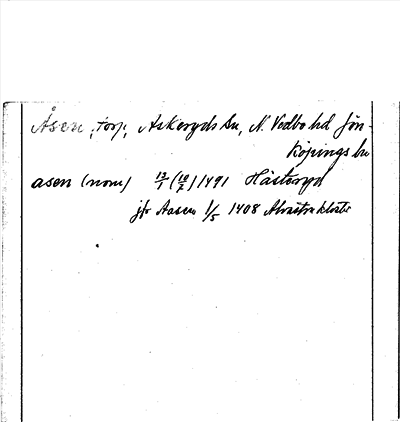 Åsen, torp, Askeryds sn, N. Vedbo hd Jön-
köpings ln
asen (nom) 13/1 (10/2) 1491 Hästeryd
jfr Aasen 1/5 1408 Alvastra kloster